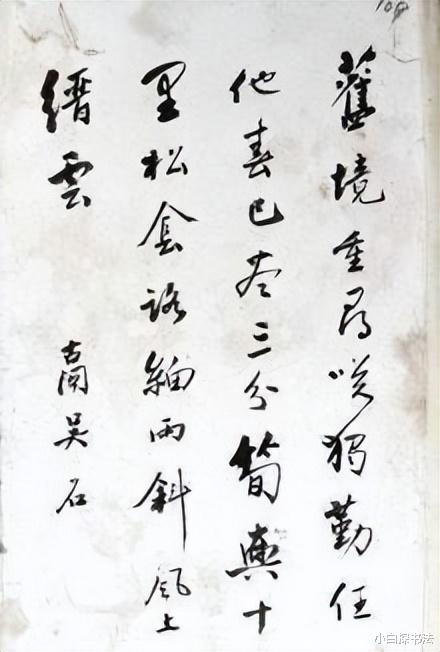 舊境重尋咲獨勤任
他春已老三分筍輿十
里松含路細雨斜風上
縉雲
吴石
小白探书法